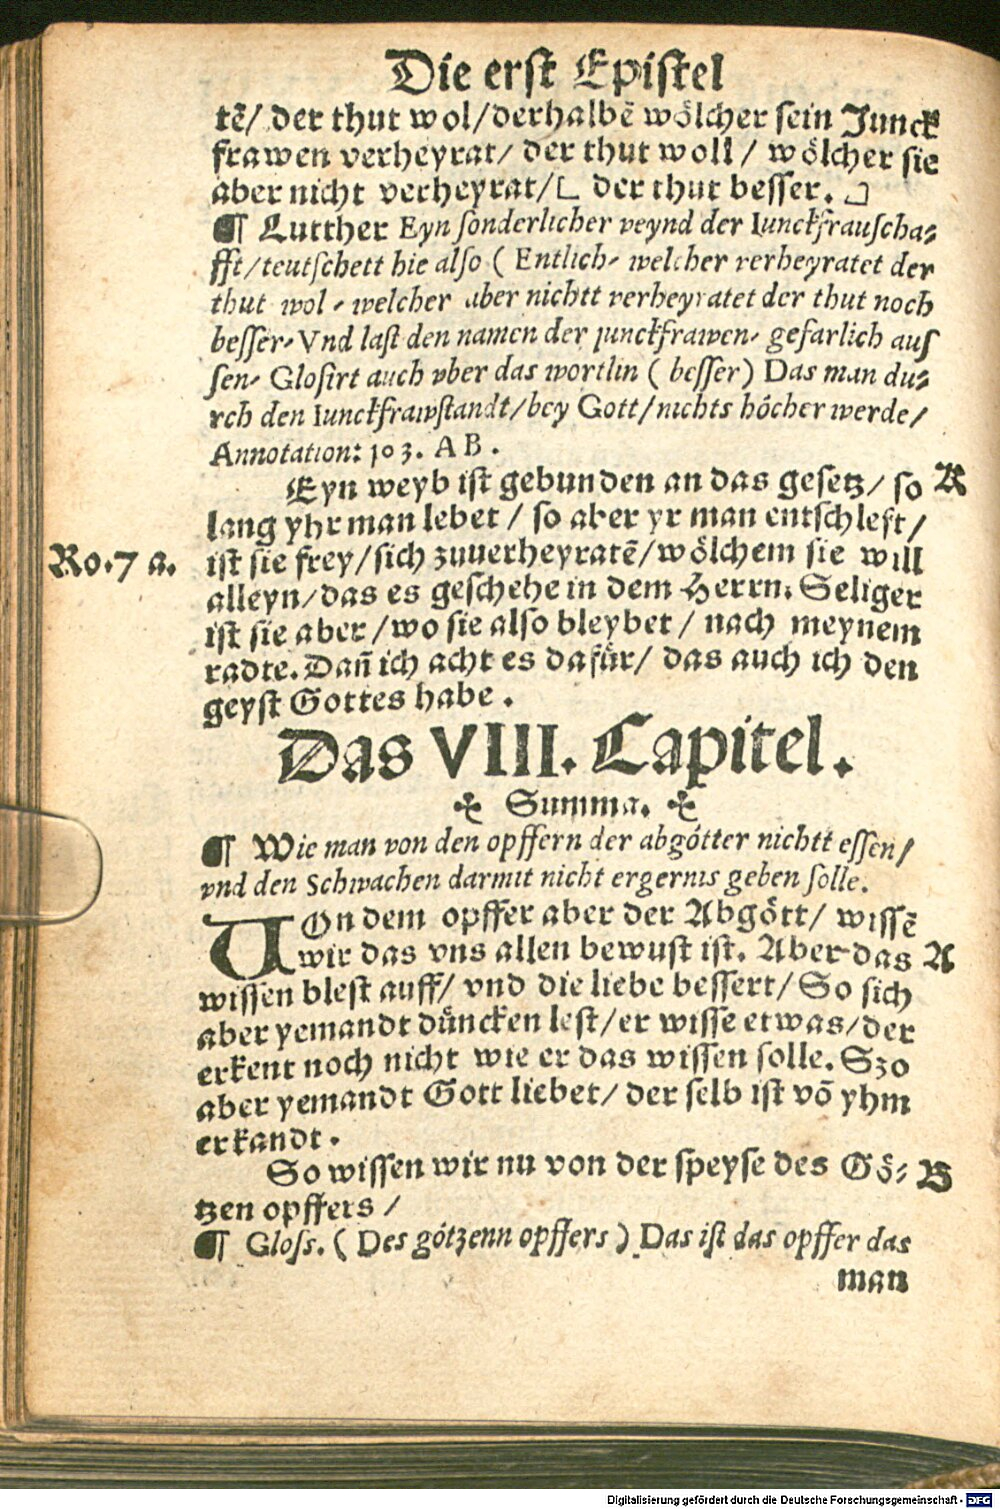 Die erst Epistel
tē/ der thut wol/derhalbē wölcher sein Junck
frawen verheyrat/ der thut woll / wölcher sie
aber nicht verheyrat/[ der thut besser. ]
¶ Lutther Eyn sonderlicher veynd der Iunckfrauscha⸗
fft/teutschett hie also ( Entlich, welcher verheyratet der
thut wol, welcher aber nichtt verheyratet der thut noch
besser, Vnd last den namen der junckfrawen, gefarlich aus
sen, Glosirt auch vber das wortlin ( besser) Das man du⸗
rch den Iunckfrawstandt/bey Gott/nichts höcher werde/
Annotation: 103. A B.
Eyn weyb ist gebunden an das gesetz/ so
A
lang yhr man lebet / so aber yr man entschleft/
Ro.7 a.
ist sie frey/sich zuuerheyratē/wölchem sie will
alleyn/das es geschehe in dem Herrn. Seliger
ist sie aber/wo sie also bleybet / nach meynem
radte. Dañ ich acht es dafür/ das auch ich den
geyst Gottes habe.
Das VIII. Capitel.
Summa.
¶ Wie man von den opffern der abgötter nichtt essen/
vnd den Schwachen darmit nicht ergernis geben solle.
VOn dem opffer aber der Abgött/ wissē
wir das vns allen bewust ist. Aber das
A
wissen blest auff/ vnd die liebe bessert/ So sich
aber yemandt düncken lest/er wisse etwas/der
erkent noch nicht wie er das wissen solle. Szo
aber yemandt Gott liebet/ der selb ist vō yhm
erkandt.
So wissen wir nu von der speyse des Gö⸗
B
tzen opffers /
¶ Gloss. ( Des götzenn opffers ) Das ist das opffer das
man
Digitalisierung gefördert durch die Deutsche Forschungsgemeinschaft - DFG